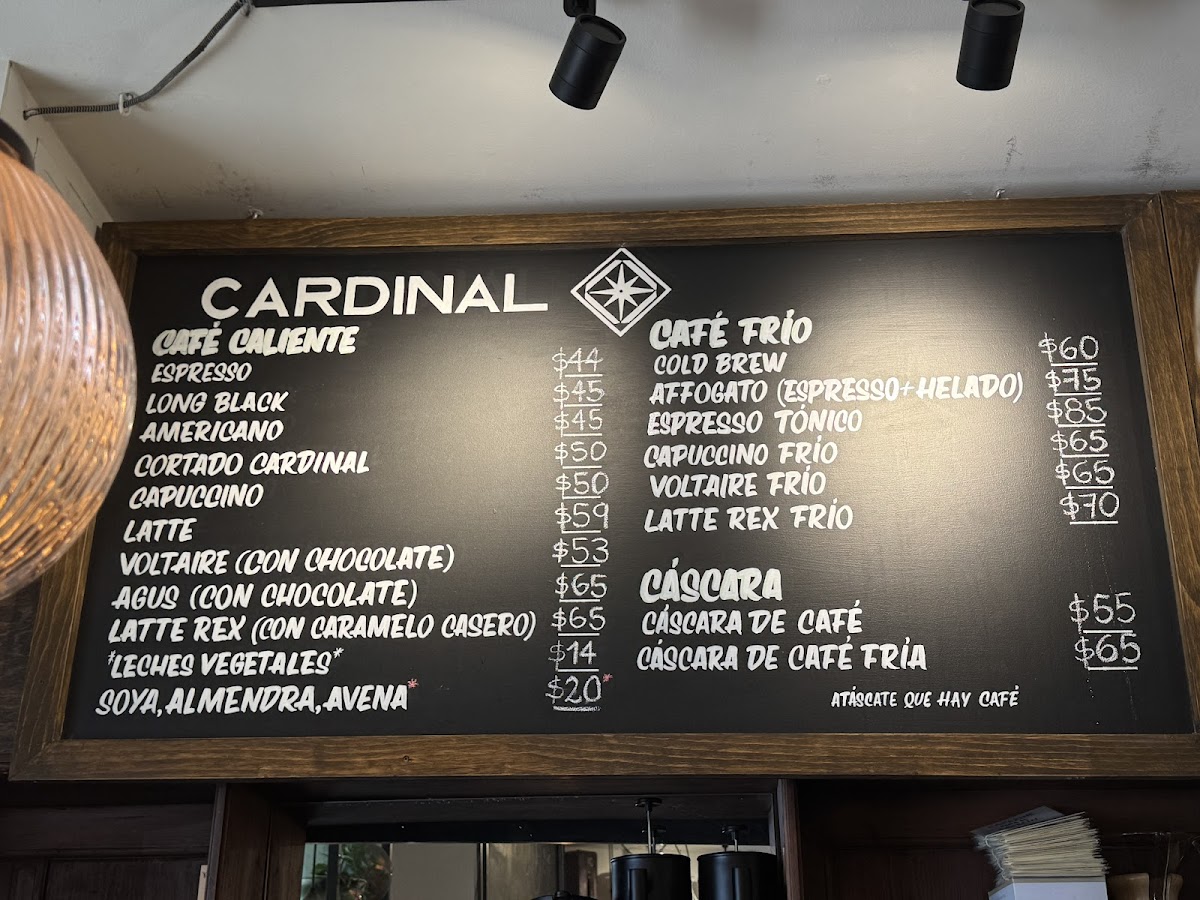 CARDINAL
CAFÉ CALIENTE
ESPRESSO $44
LONG BLACK $45
AMERICANO $45
CORTADO CARDINAL $50
CAPUCCINO $50
LATTE $59
VOLTAIRE (CON CHOCOLATE) $53
AGUS (CON CHOCOLATE) $65
LATTE REX (CON CARAMELO CASERO) $65
*LECHES VEGETALES* $14
SOYA, ALMENDRA, AVENA* $20*
CAFÉ FRÍO
COLD BREW $60
AFFOGATO (ESPRESSO+HELADO) $75
ESPRESSO TÓNICO $85
CAPUCCINO FRÍO $65
VOLTAIRE FRÍO $65
LATTE REX FRÍO $70
CÁSCARA
CÁSCARA DE CAFÉ $55
CÁSCARA DE CAFÉ FRÍA $65
ATÁSCATE QUE HAY CAFÉ